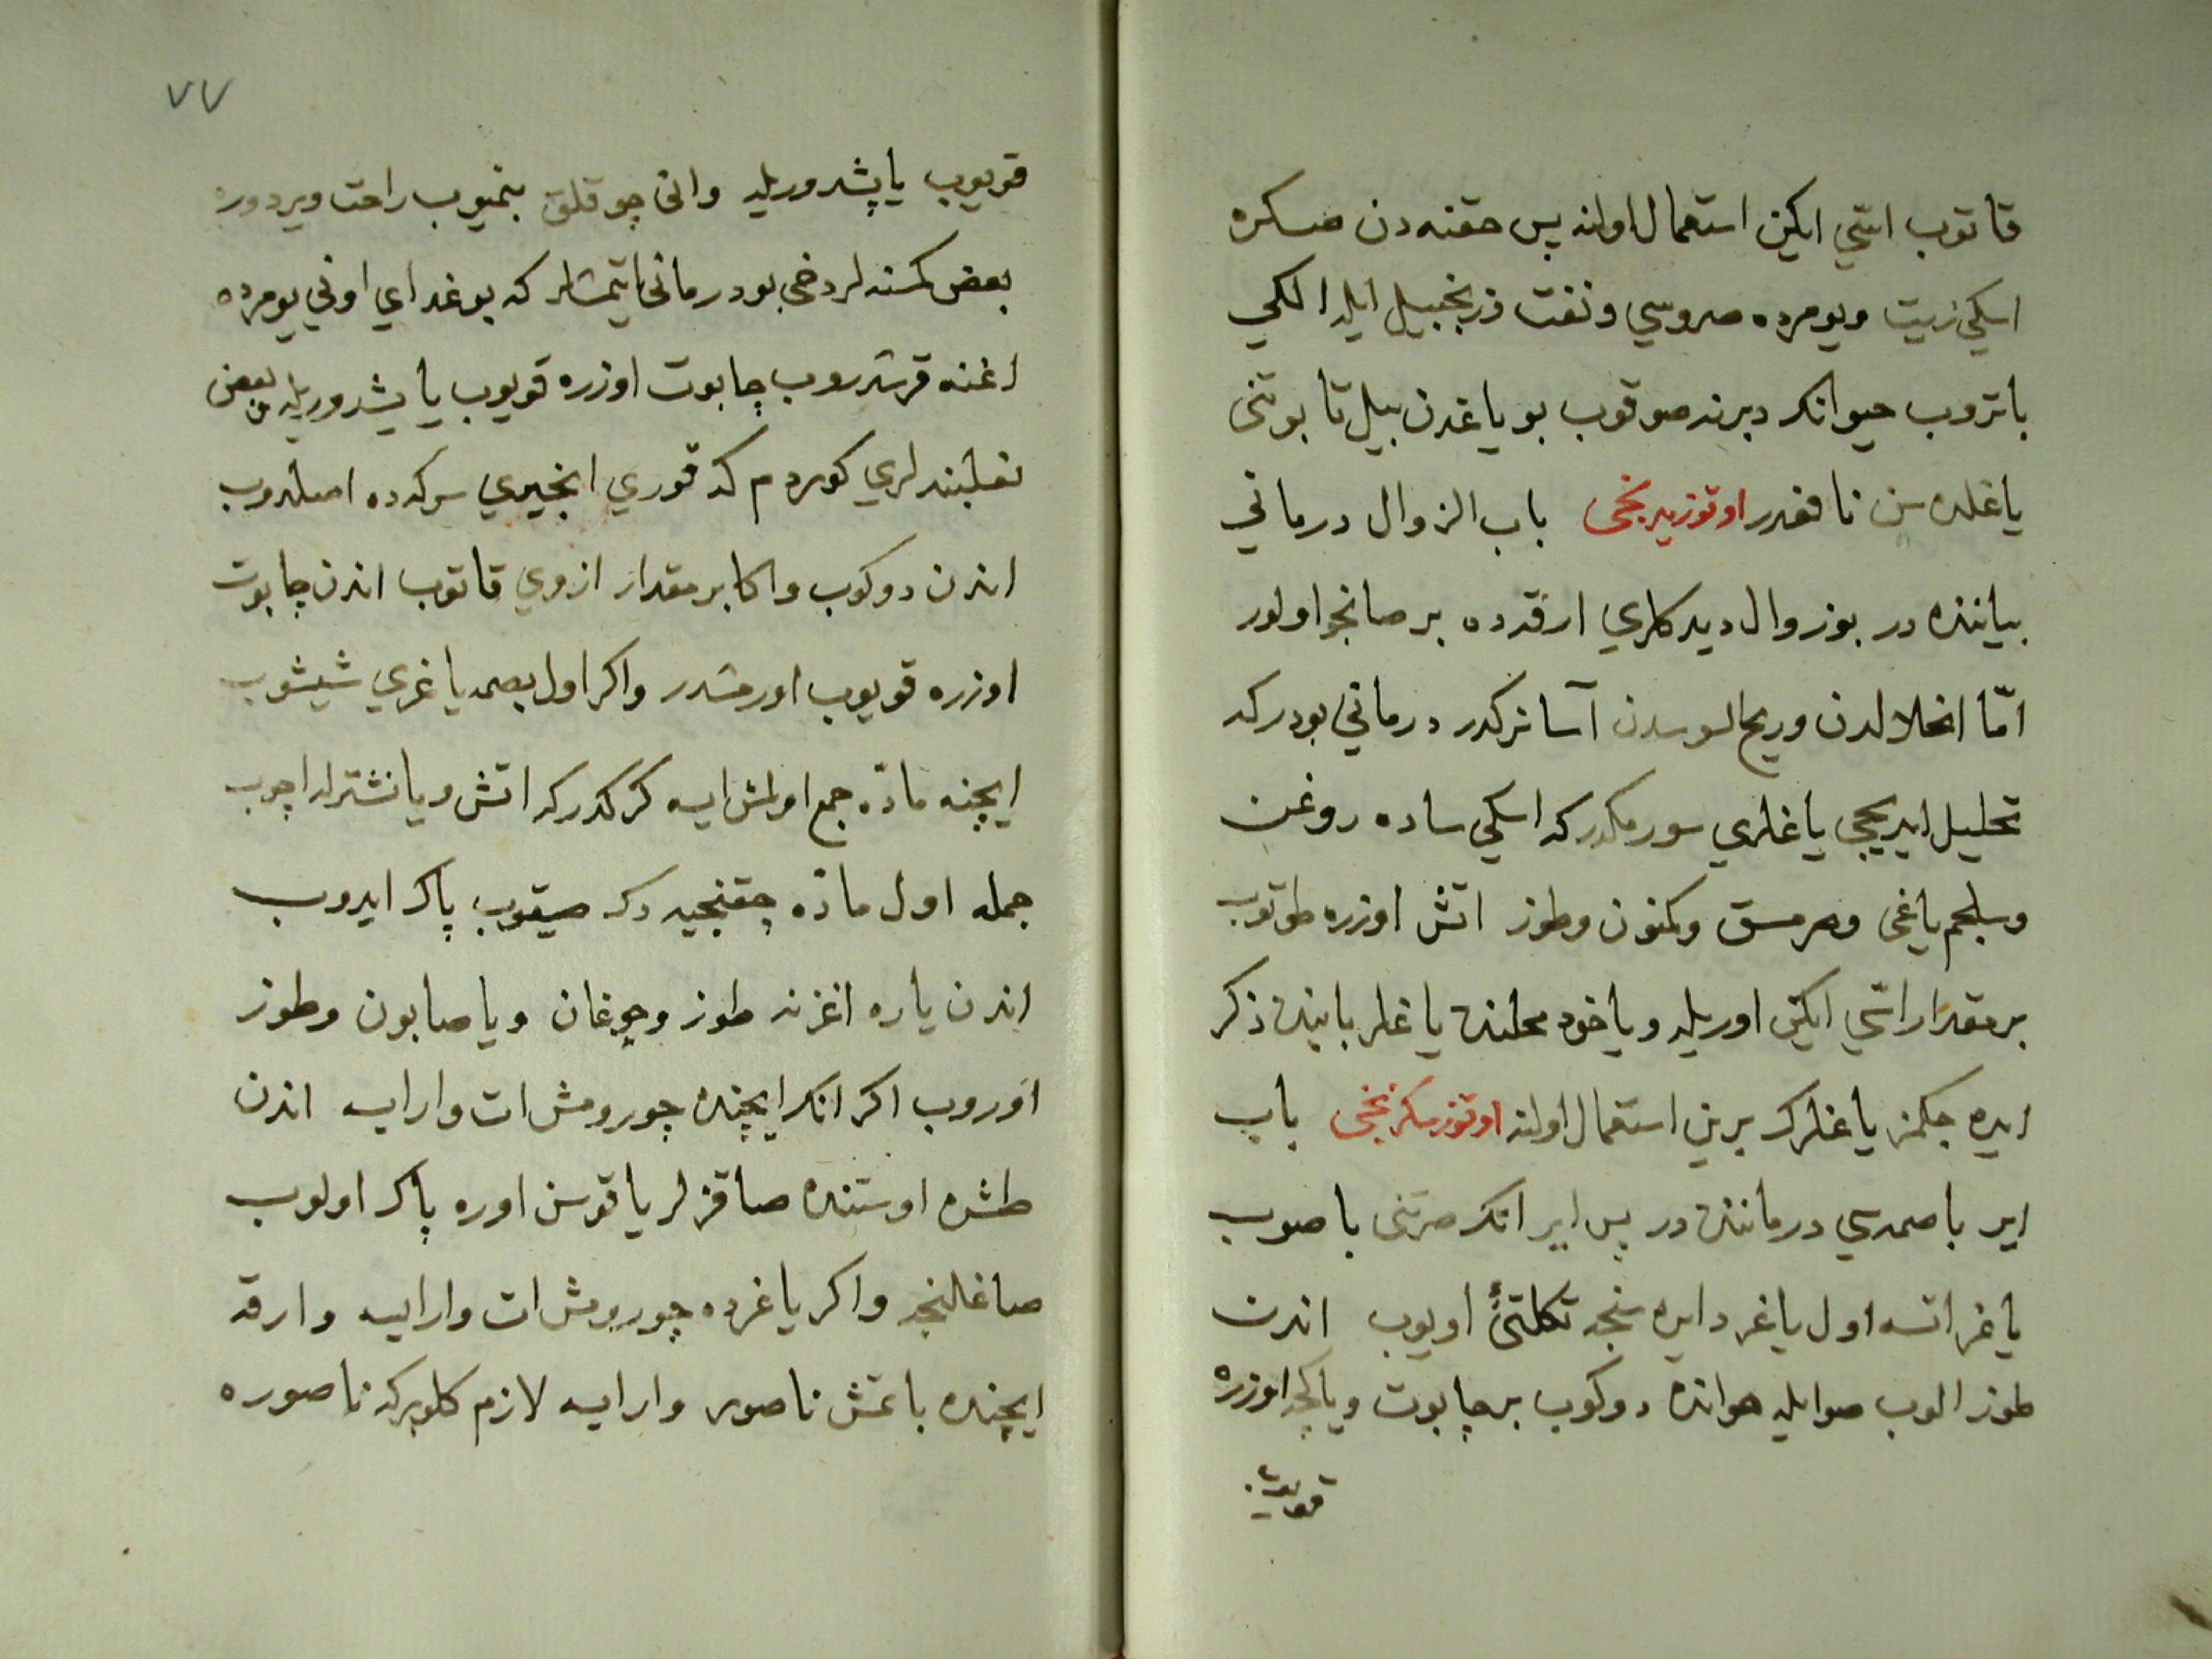 قاتوب اسّي ايكن استعمال اولنه پس حقنه دن صكره
اسكي زيت ويومرده صروسي ونفت وزنجبيل ايله الكي
باتروب حيوانك دبرنه صوقوب بو ياغدن بيل تا بوتنى
ياغلاسن نافعدر اوتوزيدنجى باب الزوال درماني
بياننده در بوزوال ديدكلري ارقده بر صانجو اولور
امّا انحلالدن وريح السوسدن آسانركدر درماني بودركه
تحليل ايديجي ياغلري سورمكدركه اسكي ساده روغن
وبلجم ياغى وصرمسق وكمنون وطوز اتش اوزره طوتوب
بر مقدار اسّي ايكن اوريله وياخود محلنده ياغلر بابنده ذكر
ايده جكمز ياغلرك برين استعمال اولنه اوتوزسكزنجى باب
اير باصمه سي درماننده در پس اير اتك صرتنى باصوب
ياغر اتسه اول ياغر دايره سنجه تكلتئ اويوب اندن
طوز الوب صوايله هوانده دوكوب بر چاپوت وياكچه اوزره
قويوب
٧٧
قويوب ياپشدوريله وانى چوقلق بنميوب راحت ويردوره
بعض كمسنه لر دخى بودرمانى ايتمشلر كه بوغداي اوني يومرده
اغنه قرشدروب چاپوت اوزره قويوب ياپشدوريله بعض
نعلبندلري كوردم كه قوري انجيري سركه ده اصلدوب
اندن دوكوب واكا بر مقدار ازوي قاتوب اندن چاپوت
اوزره قويوب اورمشدر واكر اول بصمه ياغري شيشوب
ايچنه مادّه جمع اولمش ايسه كركدركه اتش ويا نشترله اچوب
جمله اول مادّه چقنجيه دك صيقوب پاك ايدوب
اندن ياره اغزنه طوز وچوغان ويا صابون وطوز
اوروب اكر انك ايچنده چورومش ات وارايسه اندن
طشره اوستنده صاقزلر ياقوسن اوره پاك اولوب
صاغلنجه واكر ياغرده چورومش ات وارايسه وارقه
ايچنده باتمش ناصور وارايسه لازم كلوركه ناصوره